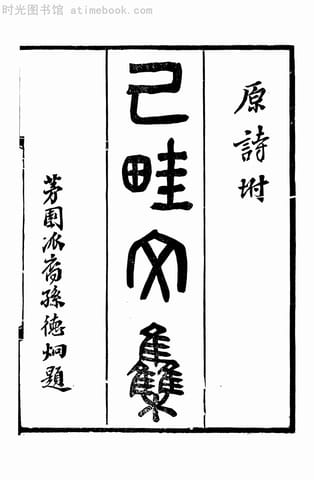 时光图书馆 - atimebook.com
原詩坿
己畦文雧
茅園派裔孫德炯題